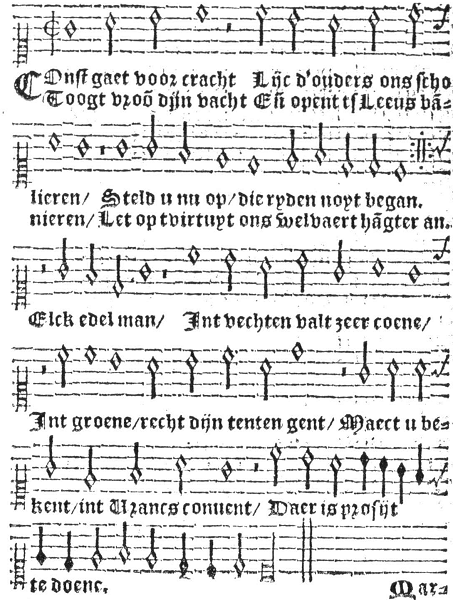 Const gaet voor cracht Lijc d'ouders ons scho
Toogt vroō dijn vacht Eñ opent tsLeeus bā-
lieren/ Steld u nu op/ die ryden noyt began.
nieren/ Let op tvirtuyt ons welvaert hāgter an.
Elck edel man/ Int vechten valt zeer coene/
Int groene/recht dijn tenten gent/ Maect u be-
kent/int Urancs convent/ Daer is profijt
te doene. Mar-